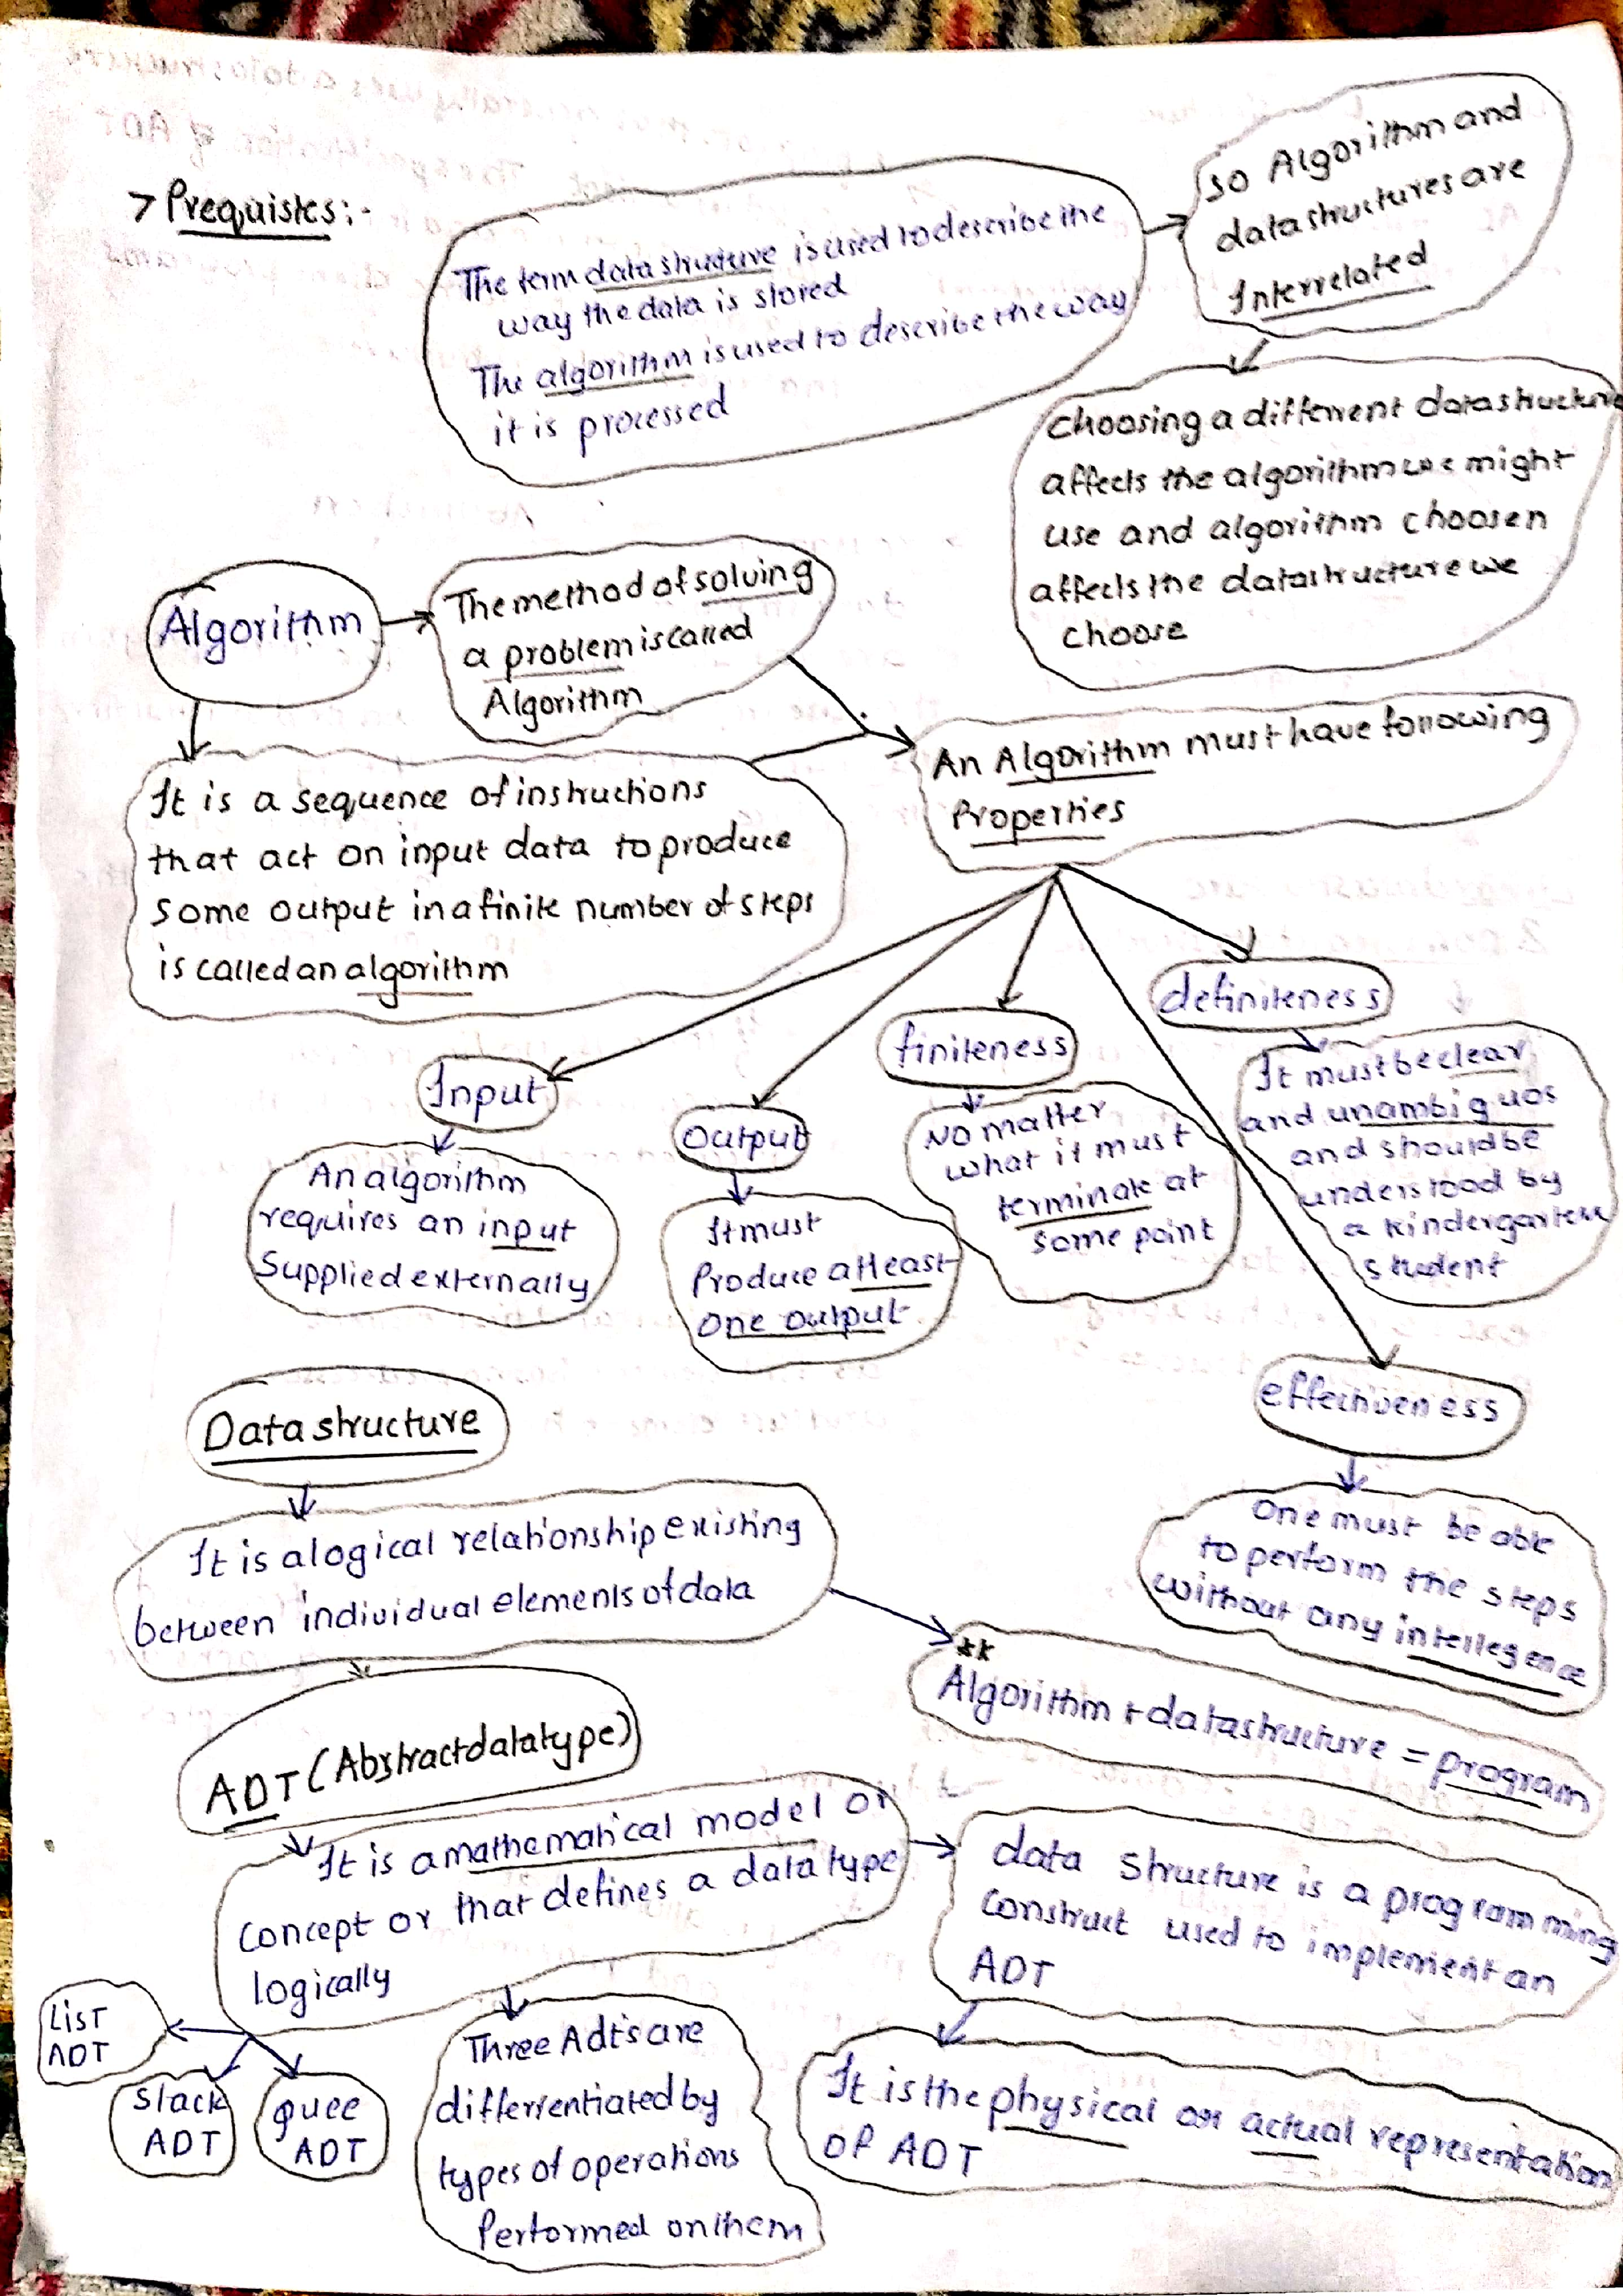 > Prequistes:-
The term datastructure is used to describe the
way the data is stored
The algorithm is used to describe the way
it is processed
so Algorithm and
datastructures are
Interrelated
choosing a different datastructure
affects the algorithm we might
use and algorithm choosen
affects the datastructure we
choose
Algorithm
The method of solving
a problem is called
Algorithm
It is a sequence of instructions
that act on input data to produce
some output in a finite number of steps
is called an algorithm
An Algorithm must have following
Properties
Input
An algorithm
requires an input
Supplied externally
Output
It must
Produce atleast
one output
finiteness
No matter
what it must
terminate at
some point
definiteness
It must be clear
and unambiguos
and should be
understood by
a kindergarten
student
effectiveness
One must be able
to perform the steps
without any intellegence
Data structure
It is a logical relationship existing
between individual elements of data
**
Algorithm + datastructure = program
ADT (Abstract datatype)
It is a mathematical model or
concept or that defines a data type
logically
data structure is a programming
construct used to implement an
ADT
It is the physical or actual representation
of ADT
List
ADT
Stack
ADT
quee
ADT
Three Adt's are
differrentiated by
types of operations
Performed on them